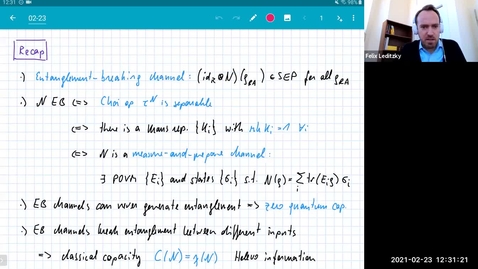 12:31
02-23
1
Felix Leditzky
Recap
·) Entanglement-breaking channel: (id_R ⊗ N)(ρ_RA) ∈ SEP for all ρ_RA
·) N EB <=> Choi op. τ^N is separable
<=> there is a Kraus rep. {K_i} with rk K_i = 1 ∀i
<=> N is a measure-and-prepare channel:
∃ POVM {E_i} and states {σ_i} s.t. N(ρ) = Σ_i tr(E_i ρ) σ_i
·) EB channels can never generate entanglement => zero quantum cap.
·) EB channels break entanglement between different inputs
=> classical capacity C(N) = χ(N) Holevo information
2021-02-23 12:31:21